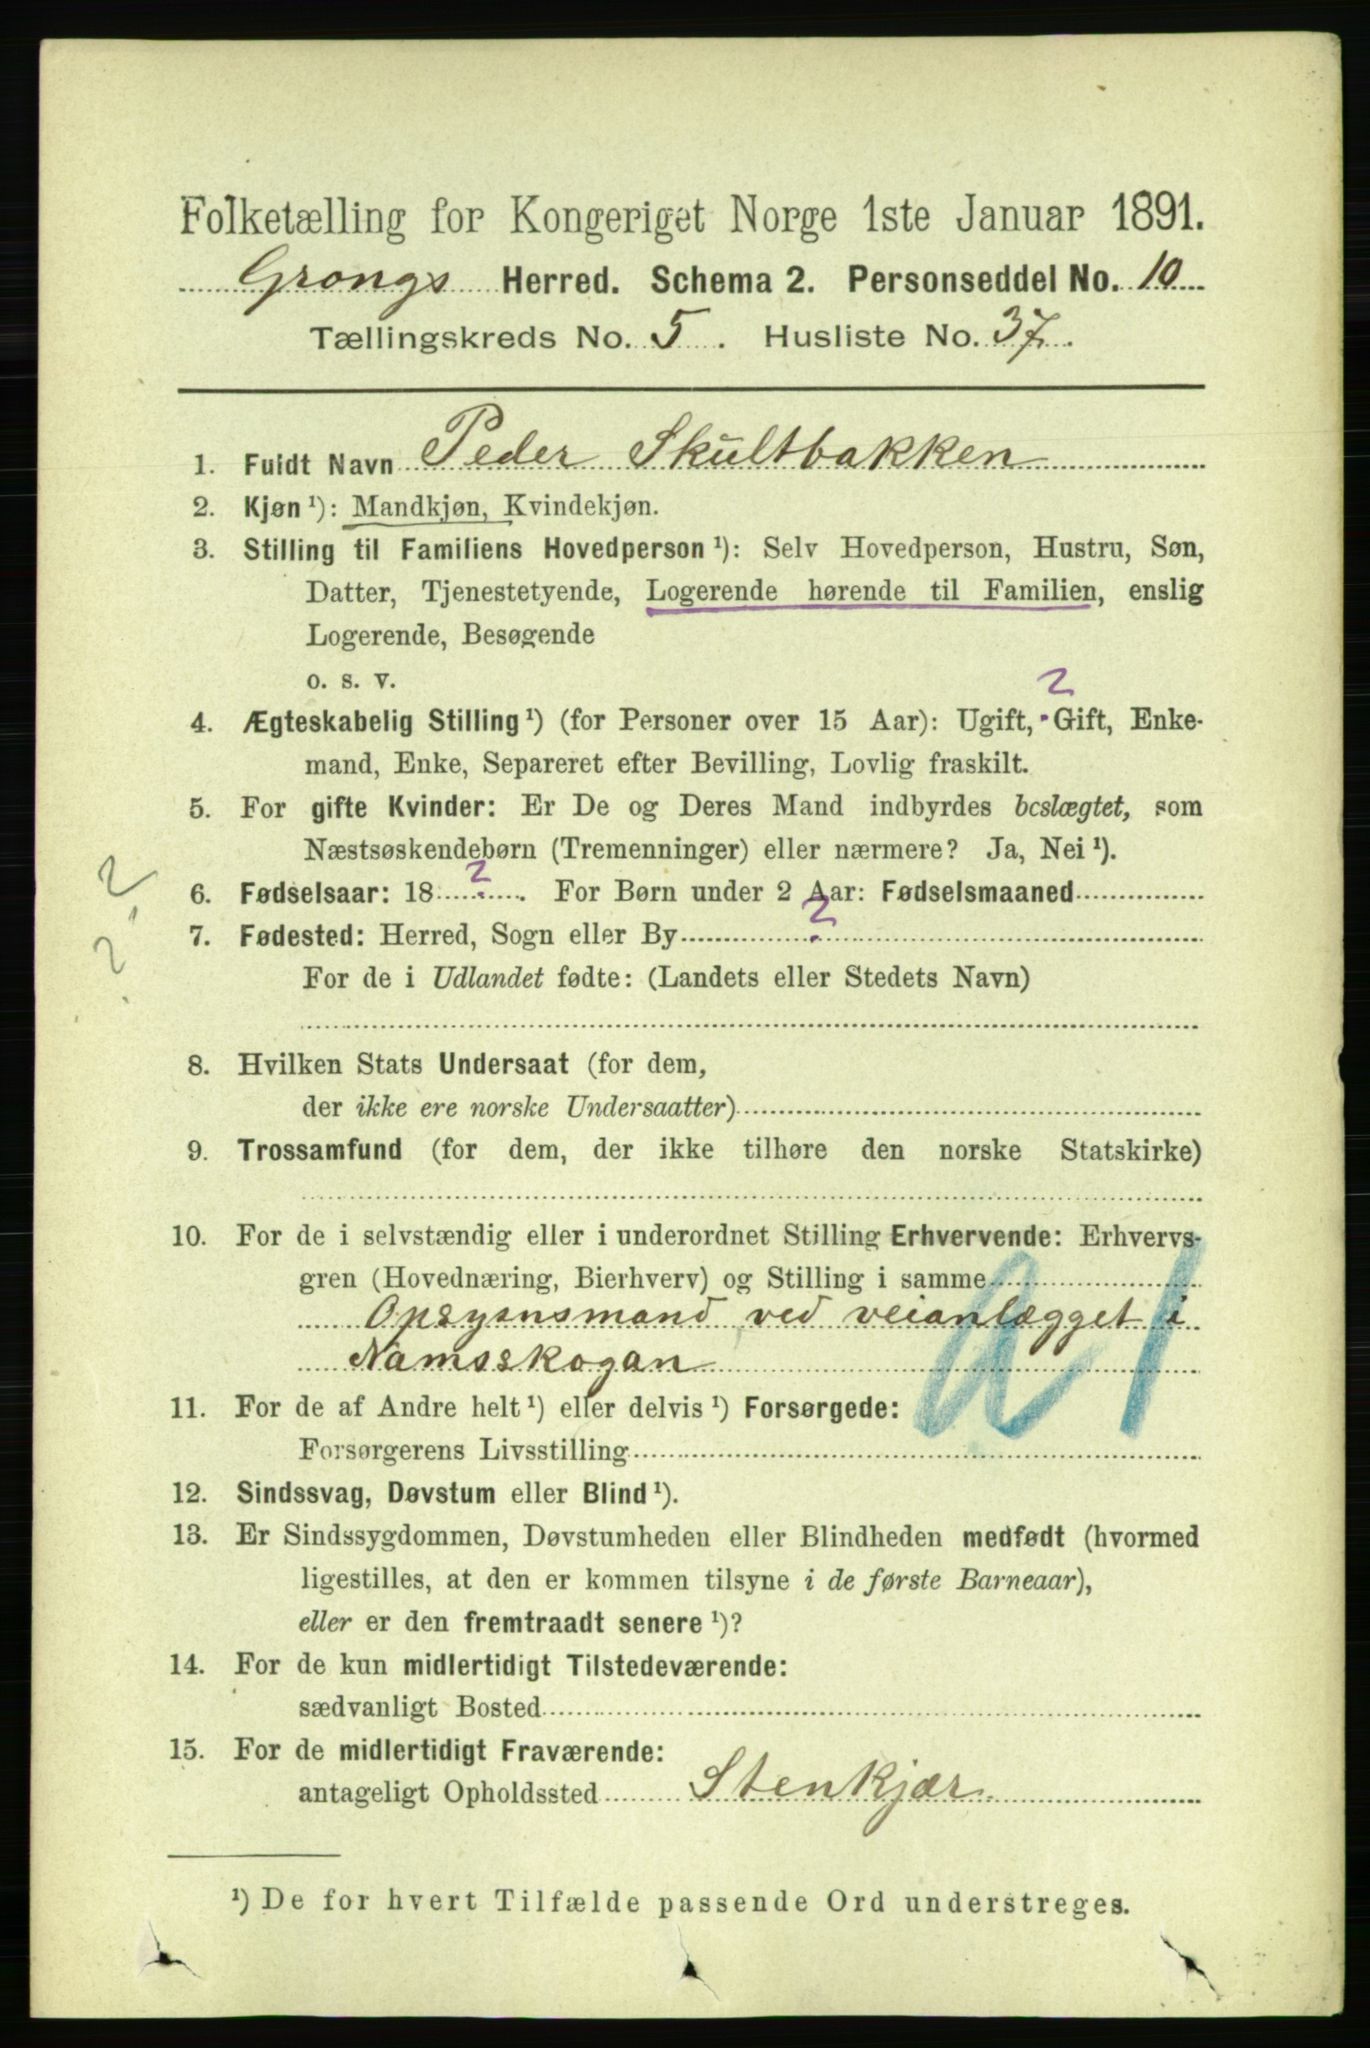 Folketælling for Kongeriget Norge 1ste Januar 1891.
Grongs Herred. Schema 2. Personseddel No. 10
Tællingskreds No. 5. Husliste No. 37.
1. Fuldt Navn Peder Skultbakken
2. Kjøn ¹): Mandkjøn, Kvindekjøn.
3. Stilling til Familiens Hovedperson ¹): Selv Hovedperson, Hustru, Søn,
Datter, Tjenestetyende, Logerende hørende til Familien, enslig
Logerende, Besøgende
o. s. v.
?
4. Ægteskabelig Stilling ¹) (for Personer over 15 Aar): Ugift, Gift, Enke-
mand, Enke, Separeret efter Bevilling, Lovlig fraskilt.
5. For gifte Kvinder: Er De og Deres Mand indbyrdes beslægtet, som
Næstsøskendebørn (Tremenninger) eller nærmere? Ja, Nei ¹).
?
6. Fødselsaar: 18 ? . For Børn under 2 Aar: Fødselsmaaned
?
7. Fødested: Herred, Sogn eller By ?
For de i Udlandet fødte: (Landets eller Stedets Navn)
8. Hvilken Stats Undersaat (for dem,
der ikke ere norske Undersaatter)
9. Trossamfund (for dem, der ikke tilhøre den norske Statskirke)
10. For de i selvstændig eller i underordnet Stilling Erhvervende: Erhvervs-
gren (Hovednæring, Bierhverv) og Stilling i samme
Opsynsmand ved veianlægget i
Namsskogan
a 1
11. For de af Andre helt ¹) eller delvis ¹) Forsørgede:
Forsørgerens Livsstilling
12. Sindssvag, Døvstum eller Blind ¹).
13. Er Sindssygdommen, Døvstumheden eller Blindheden medfødt (hvormed
ligestilles, at den er kommen tilsyne i de første Barneaar),
eller er den fremtraadt senere ¹)?
14. For de kun midlertidigt Tilstedeværende:
sædvanligt Bosted
15. For de midlertidigt Fraværende:
antageligt Opholdssted Stenkjær
¹) De for hvert Tilfælde passende Ord understreges.